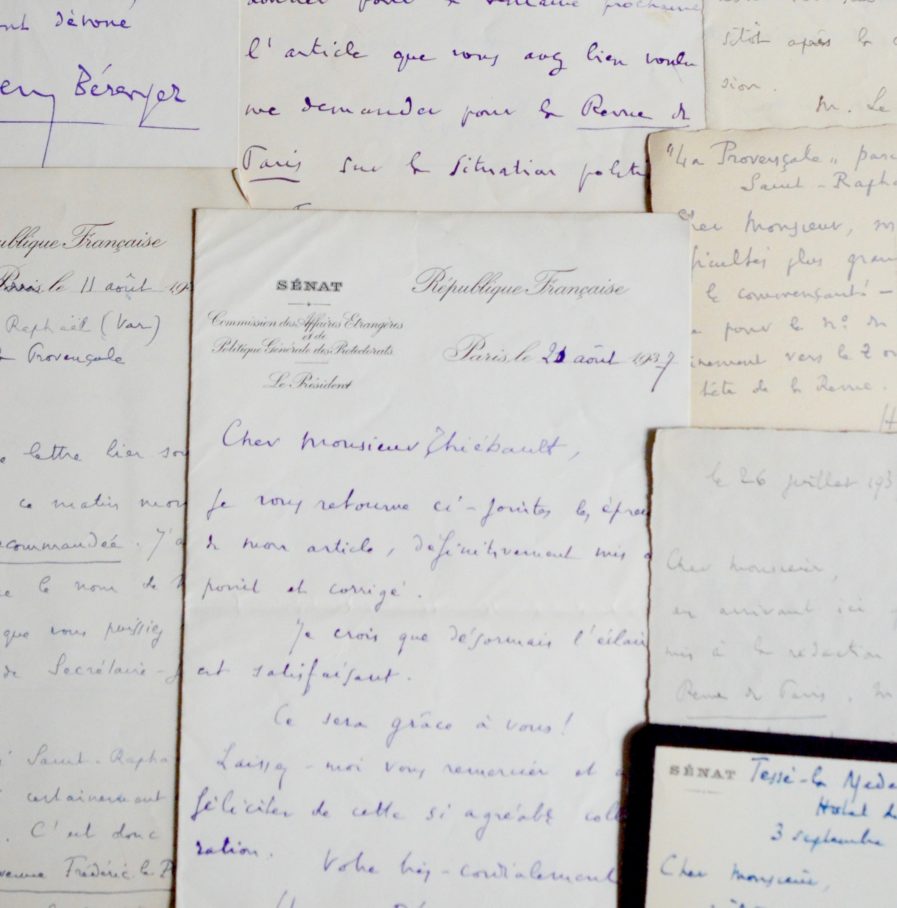 nt dévoué
Béranger
l'article que vous avez bien voulu
me demander pour la Revue de
Paris sur la situation polit
sitôt après la
sion.
M. Le
"La Provençale"
Saint-Raph
Cher Monsieur,
plus gran
pour le n° de
vers le 2
tête de la Revue.
H
ublique Française
Paris, le 11 août 19
Raphaël (Var)
Provençale
lettre hier so
ce matin mon
commandée. J'a
le nom de
que vous puissiez
de Secrétaire-
Saint-Rapha
certainement
. C'est donc
venue Frédéric le P
SÉNAT
Commission des Affaires Etrangères
et de
Politique Générale des Protectorats
Le Président
République Française
Paris, le 21 août 1937
Cher Monsieur Thiébault,
Je vous retourne ci-jointes les épreu
de mon article, définitivement mis a
point et corrigé.
Je crois que désormais l'éclair
est satisfaisant.
Ce sera grâce à vous!
Laissez-moi vous remercier et
féliciter de cette si agréable coll
ration.
Votre très-cordialement
le 26 juillet 193
Cher Monsieur,
en arrivant ici
mis à la rédaction
Revue de Paris. M
SÉNAT
Tessé-la Made
Hotel
3 septembre
Cher Monsieur,